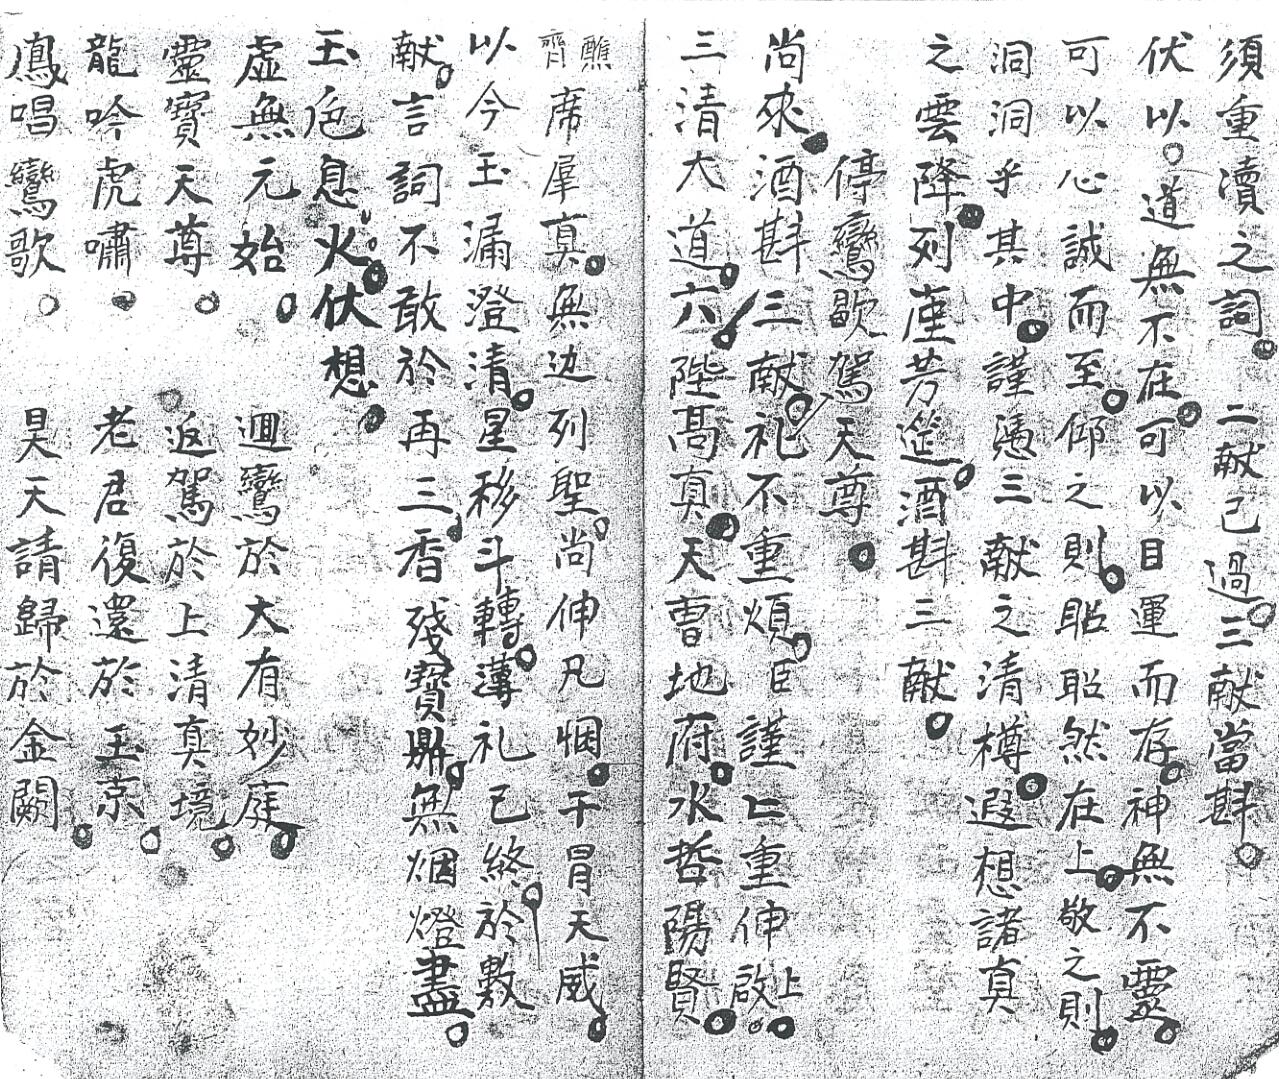 須重瀆之詞。二献已過。三献當斟。
伏以。道無不在。可以目運而存。神無不靈。
可以心誠而至。仰之則。昭昭然在上。敬之則。
洞洞乎其中。謹憑三献之清樽。遐想諸真
之雲降。列座芳筵。酒斟三献。
停鸞歇駕天尊。
尚來。酒斟三献。礼不重煩。臣謹上重伸啟上。
三清大道。六陛髙真。天曹地府。水哲陽賢。
醮齊席羣真。無边列聖。尚伸凡悃。干冐天威。
以今玉漏澄清。星移斗轉。薄礼已終。於敷
献。言詞不敢於再三。香殘寶鼎。無烟燈盡。
玉色息火。伏想。
虚無元始。迴鸞於大有妙庭。
靈寳天尊。返駕於上清真境。
龍吟虎嘯。老君復還於玉京。
鳳唱鸞歌。昊天請歸於金闕。